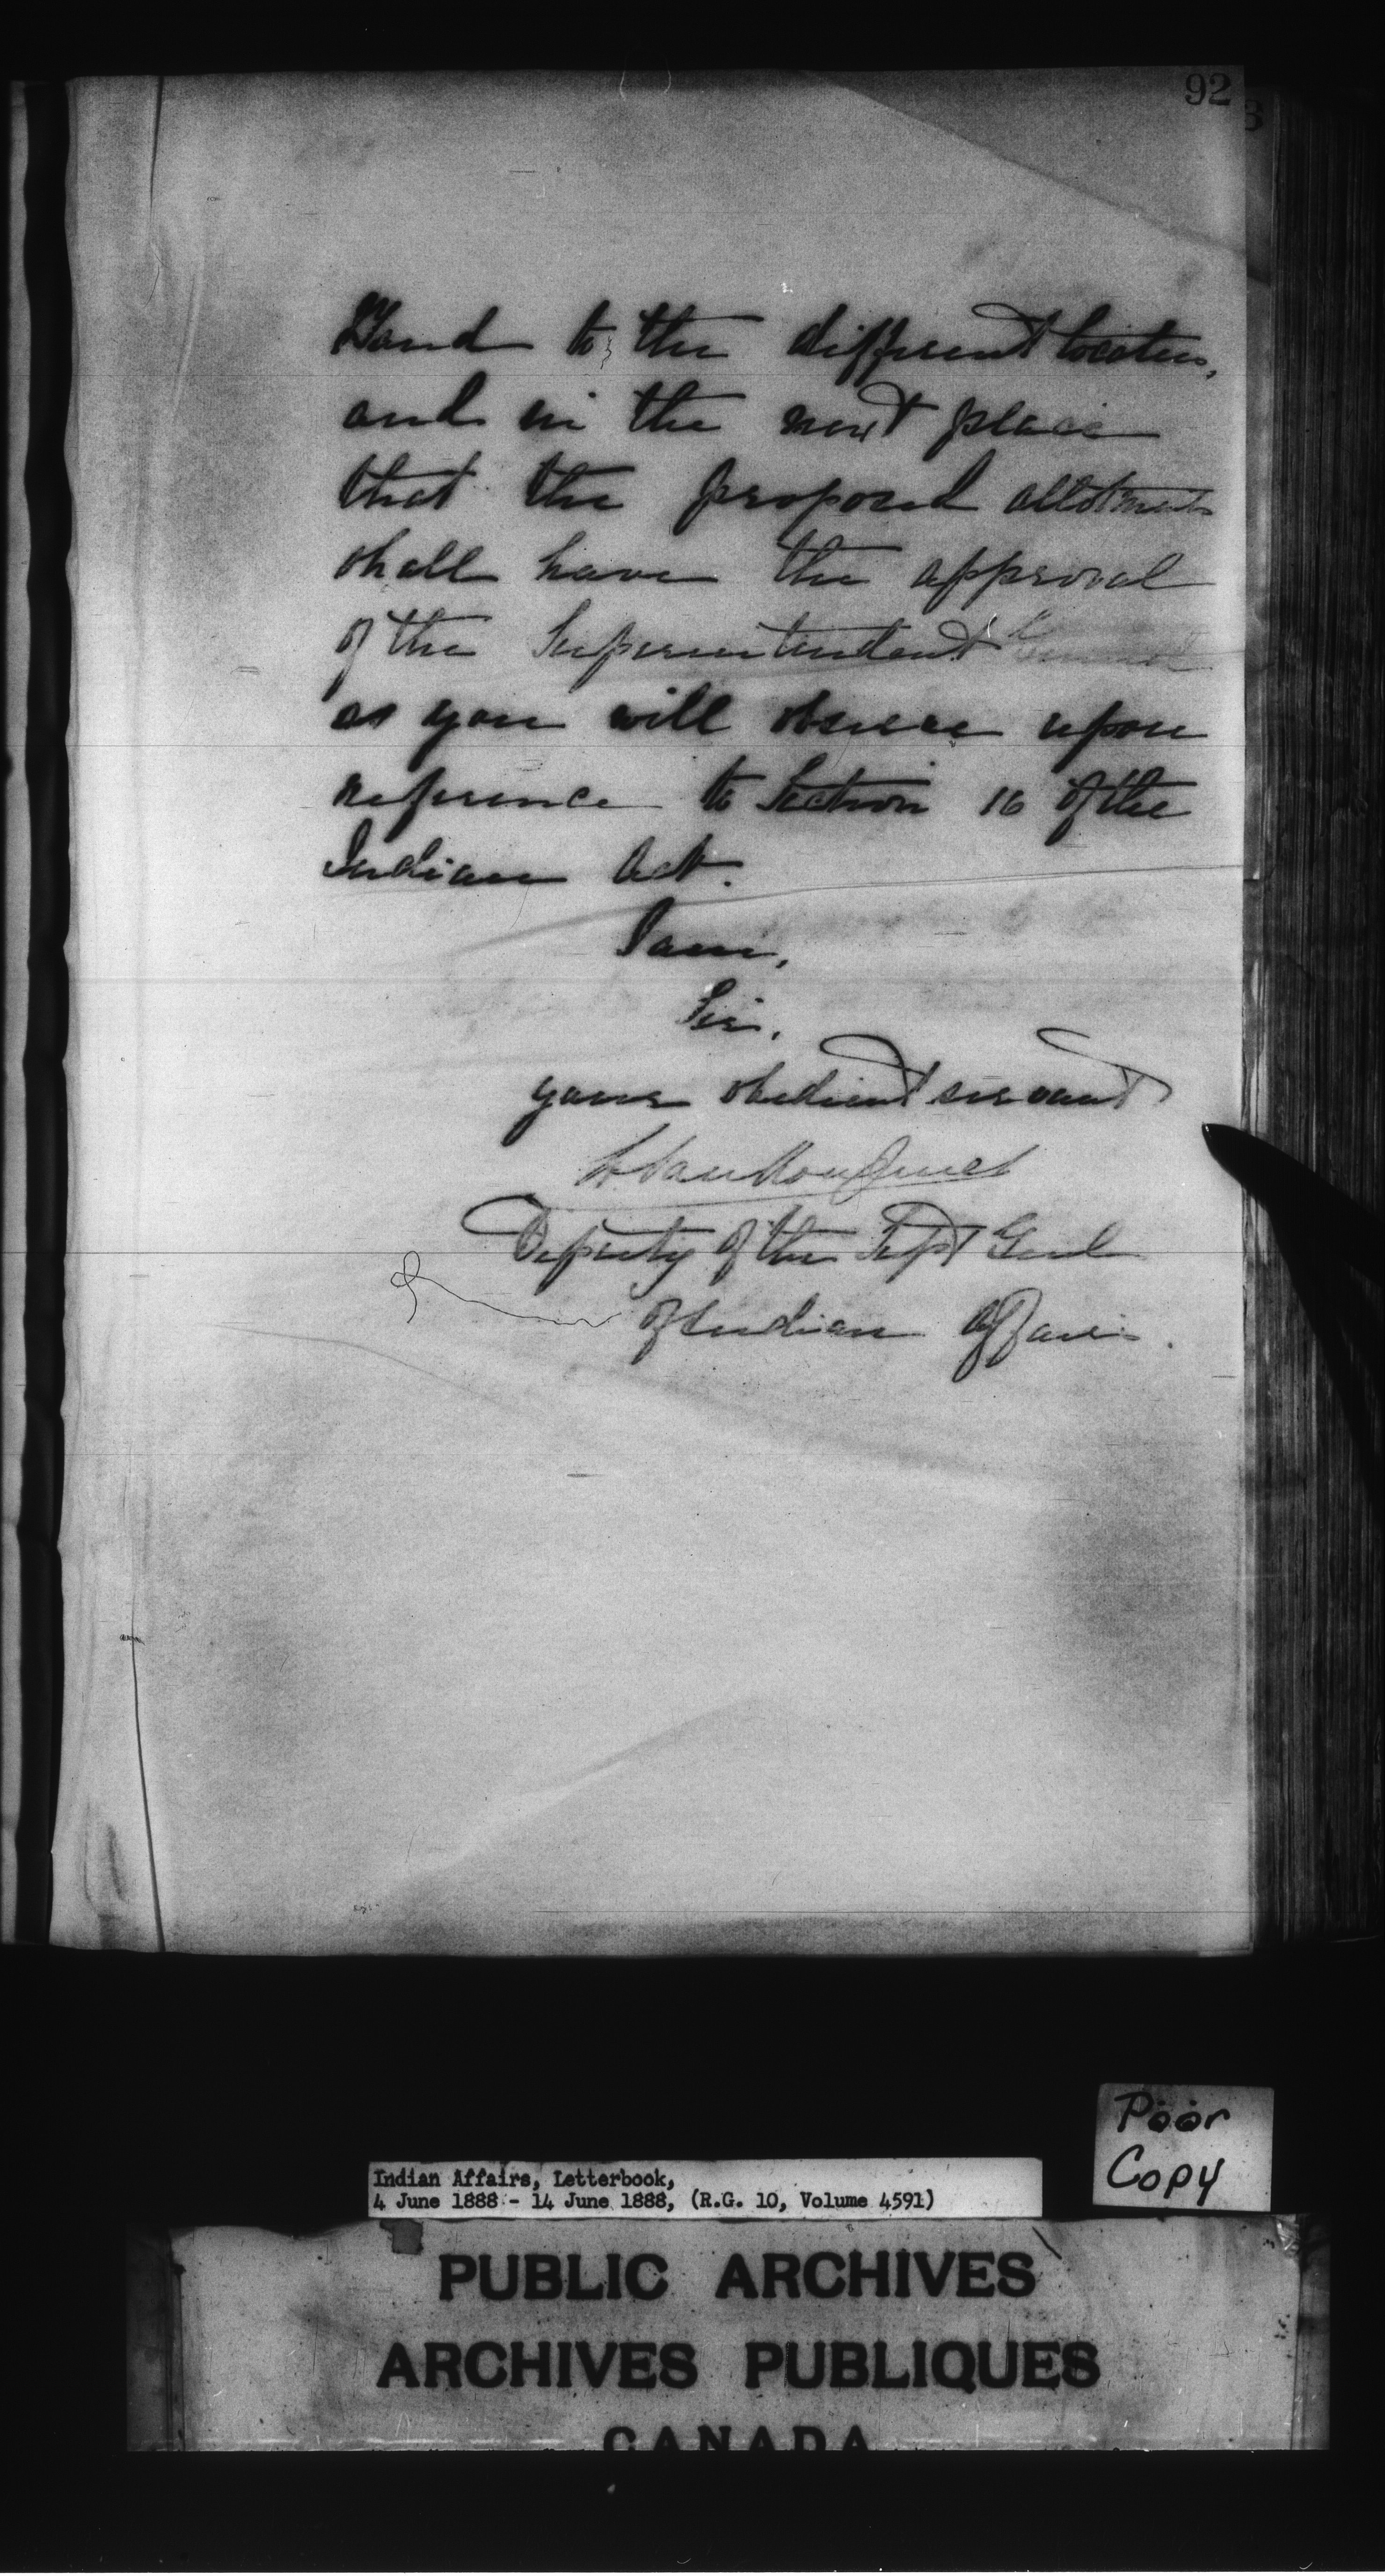 92
Band to the different locatees,
and in the next place
that the proposed allotments
shall have the approval
of the Superintendent General
as you will observe upon
reference to Section 16 of the
Indian Act.
I am,
Sir,
your obedient servant
L. VanKoughnet
Deputy of the Supt Genl
of Indian Affairs.
Poor
Copy
Indian Affairs, Letterbook,
4 June 1888 - 14 June 1888, (R.G. 10, Volume 4591)
PUBLIC ARCHIVES
ARCHIVES PUBLIQUES
CANADA